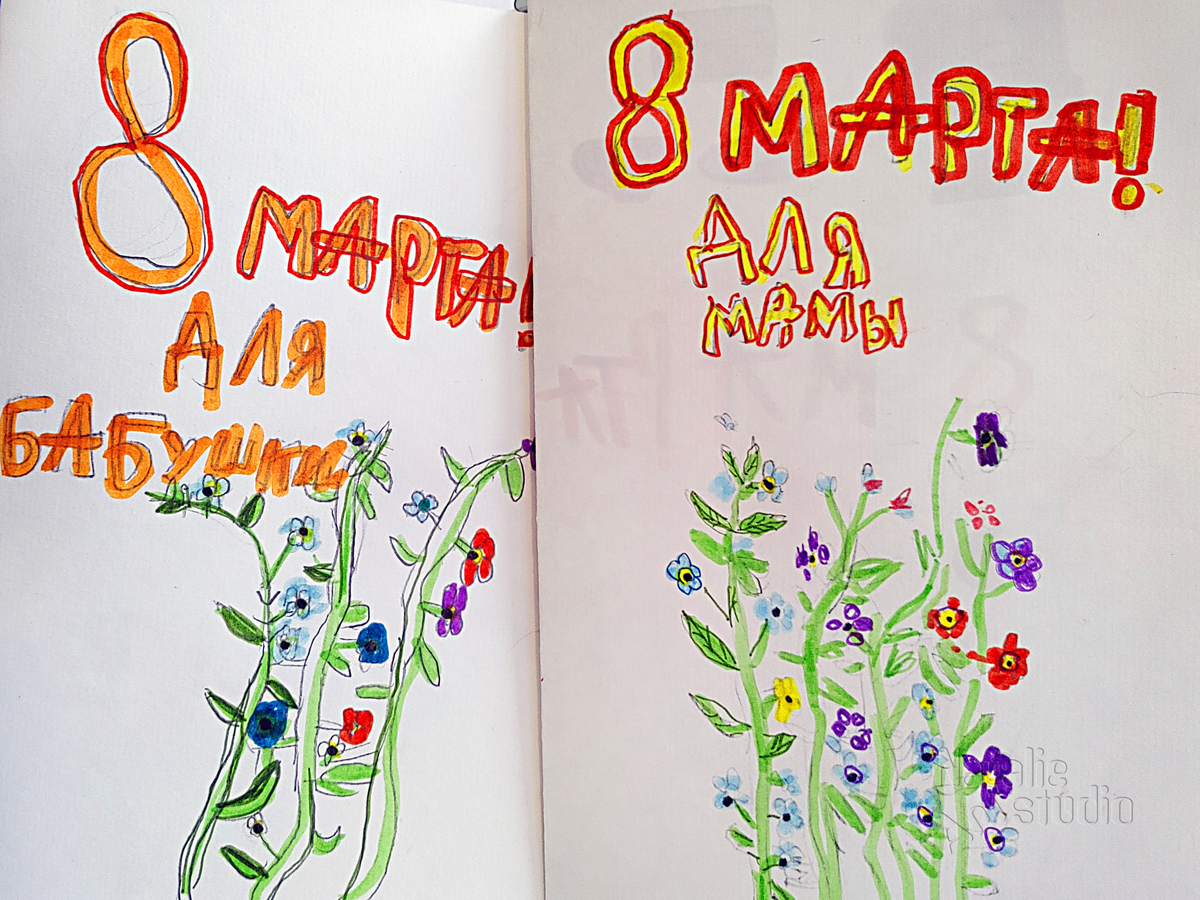 8 МАРТА!
ДЛЯ
БАБУШКИ
8 МАРТА!
ДЛЯ
МАМЫ
studio